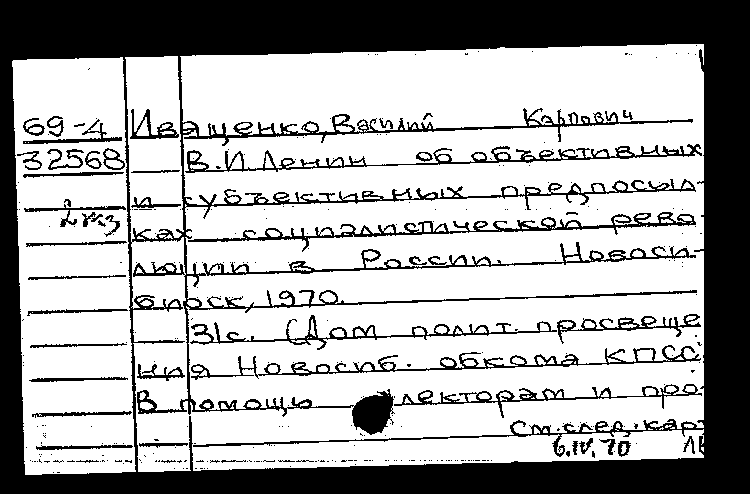 69-4 Иващенко, Василий Карпович
32568 В.И Ленин об объективных
2 экз и субъективных предпосыл-
ках социалистической рево-
люции в России. Новоси-
бирск, 1970.
31с. (Дом полит. просвеще
ния Новосиб. обкома КПСС.
В помощь лекторам и про-
См. след. карт
6.IV.70